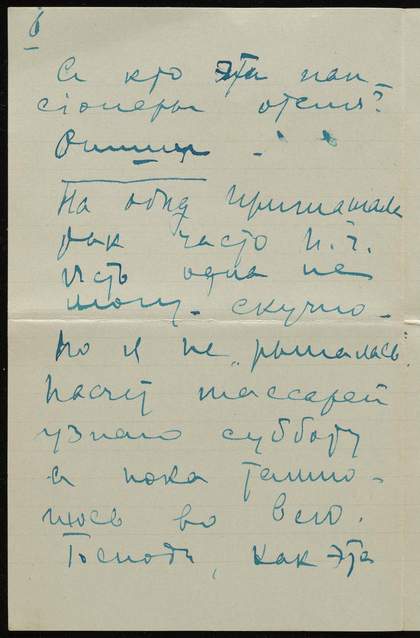 6
А кто эта пан-
сіонеры отеля?
На обед пригласила
как часто П. Г.
Исть одна не
могу. скучно.
Но я не "рышалась"
Насчет массажей
узнаю субботу
а пока томлю-
юсь во всю.
Господи, как эта